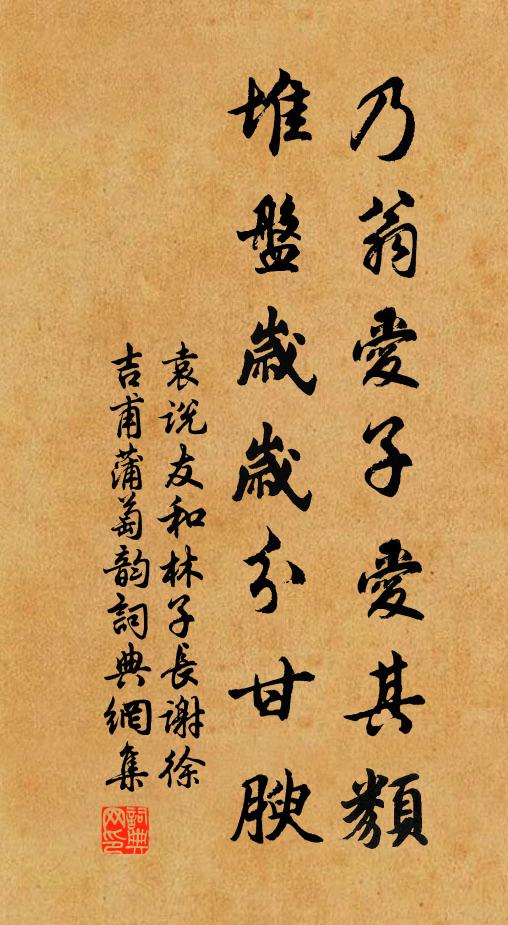 乃翁愛子愛其類
堆盤歲歲分甘腴
袁说友和林子長谢徐
吉甫蒲萄韵詞典網集
詞典网印